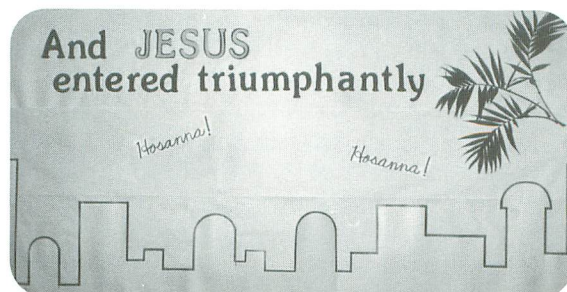 And JESUS
entered triumphantly
Hosanna!
Hosanna!